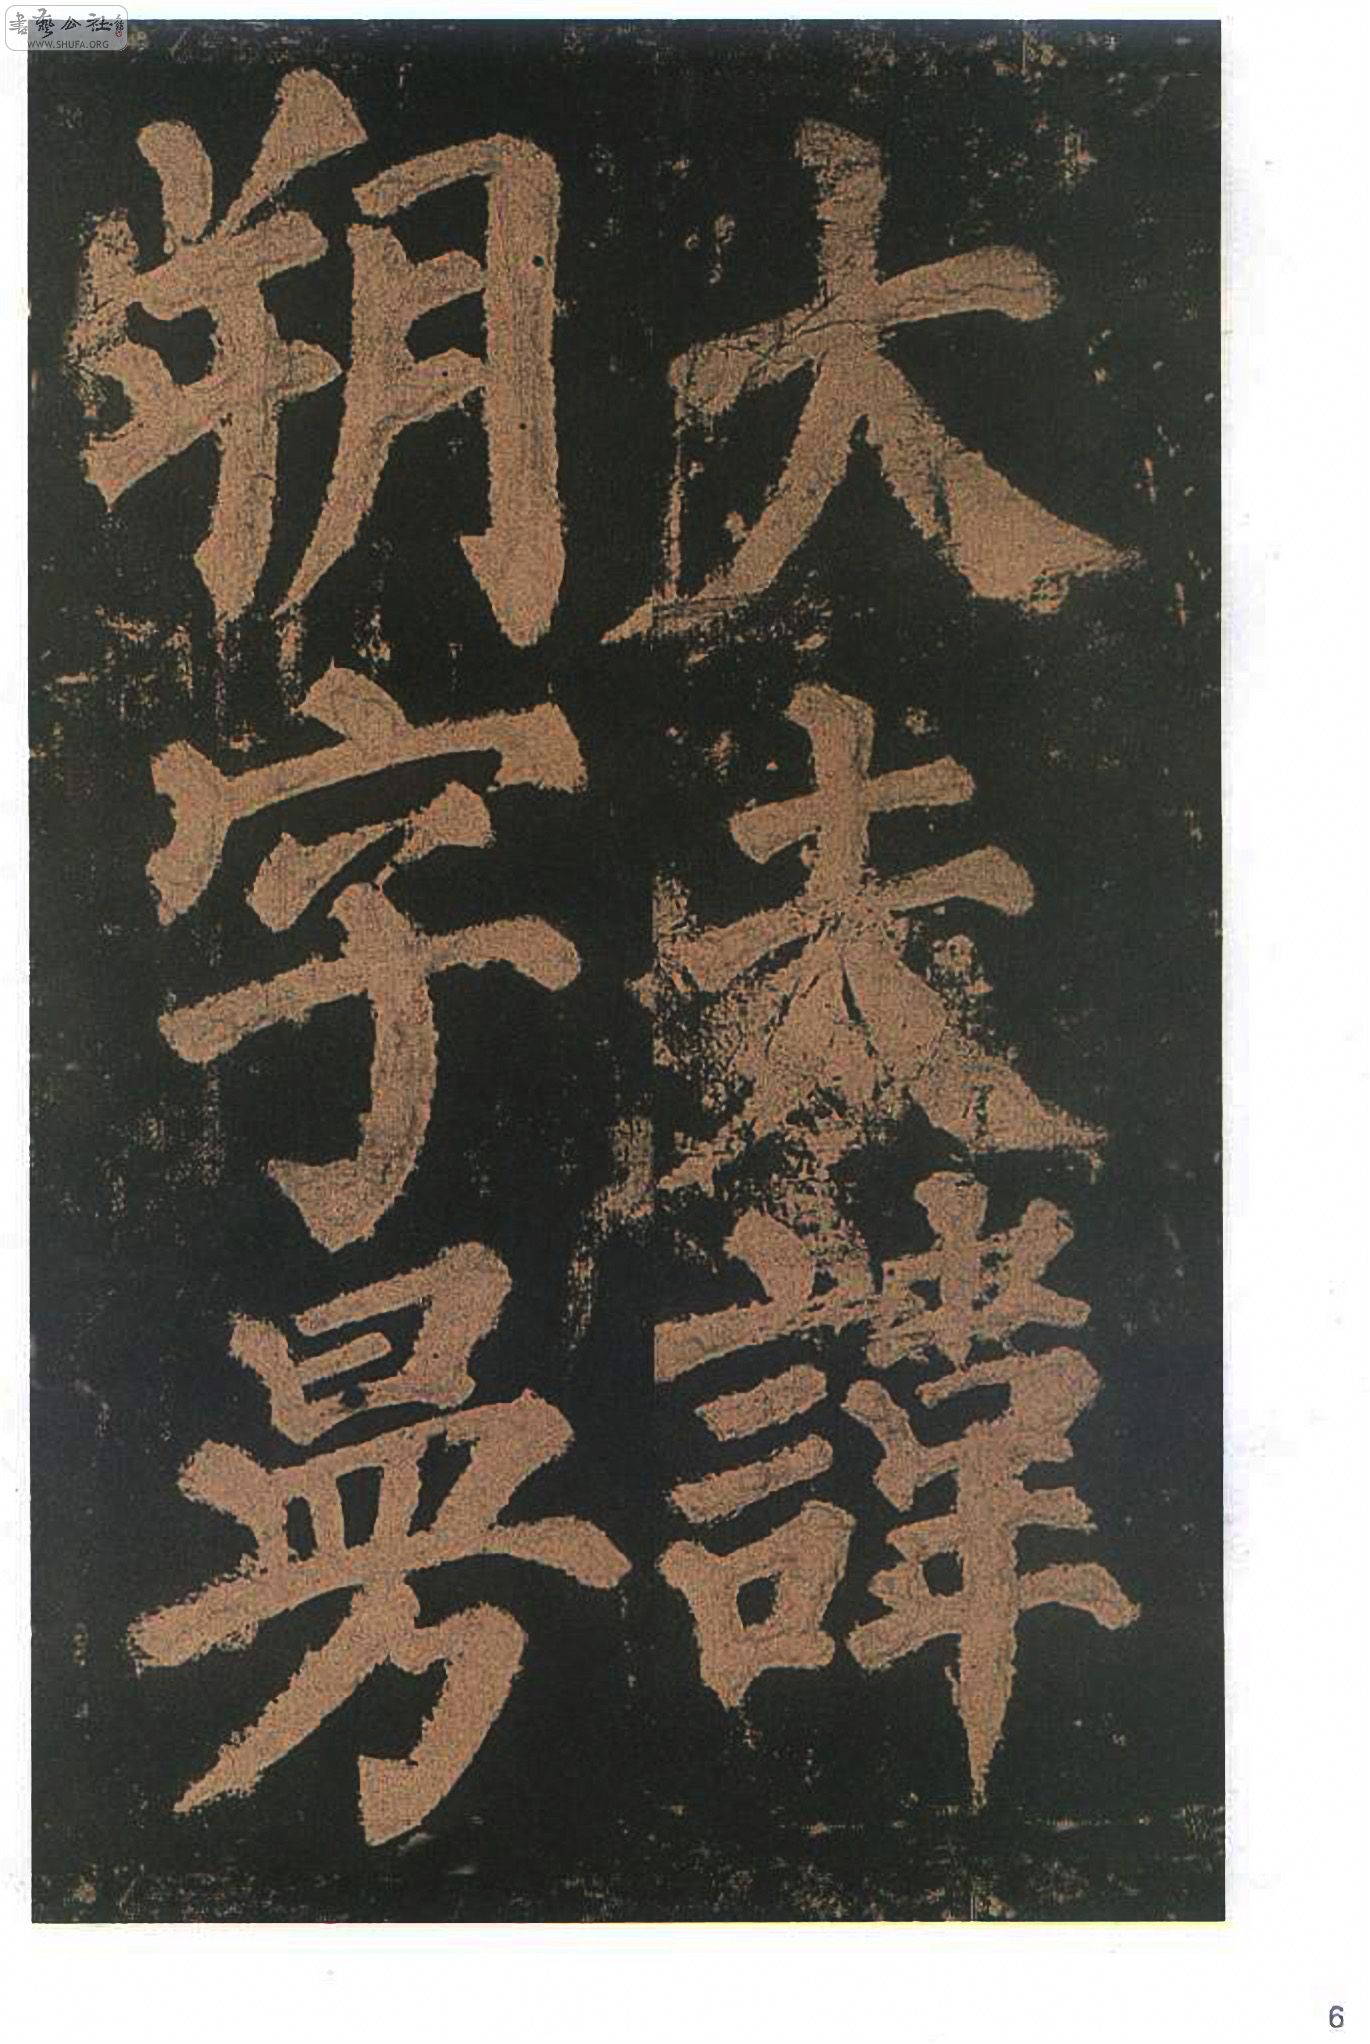 大夫諱
朔字曼
書藝公社
WWW.SHUFA.ORG
6